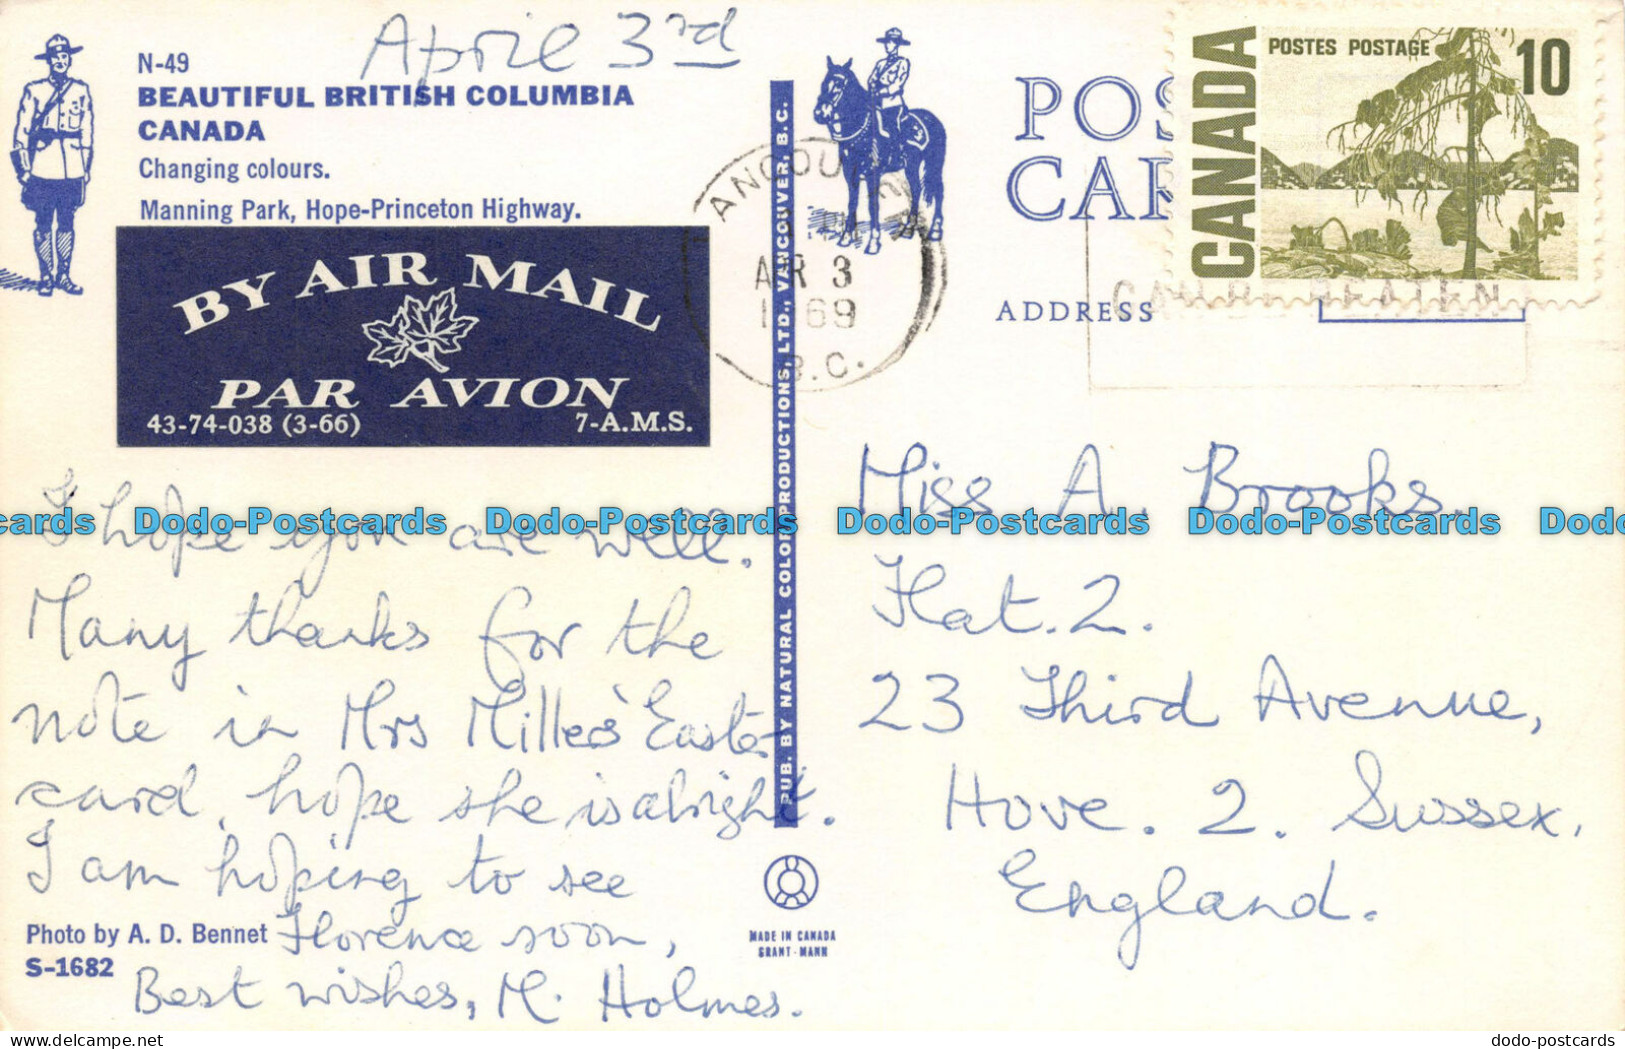 April 3rd
N-49
BEAUTIFUL BRITISH COLUMBIA
CANADA
Changing colours.
Manning Park, Hope-Princeton Highway.
BY AIR MAIL
PAR AVION
43-74-038 (3-66) 7-A.M.S.
I hope you are well.
Many thanks for the
note in Mrs Millers' Easter
card, hope she is alright.
I am hoping to see
Florence soon,
Best wishes, M. Holmes.
Photo by A. D. Bennet
S-1682
PUB. BY NATURAL COLOR PRODUCTIONS, LTD., VANCOUVER, B.C.
MADE IN CANADA
GRANT-MANN
POS
CAR
ADDRESS
CANADA
POSTES POSTAGE 10
ANCOU
3
69
B.C.
Miss A. Brooks.
Flat. 2.
23 Third Avenue,
Hove. 2. Sussex,
England.
cards Dodo-Postcards Dodo-Postcards Dodo-Postcards Dodo-Postcards Dodo
dodo-postcards